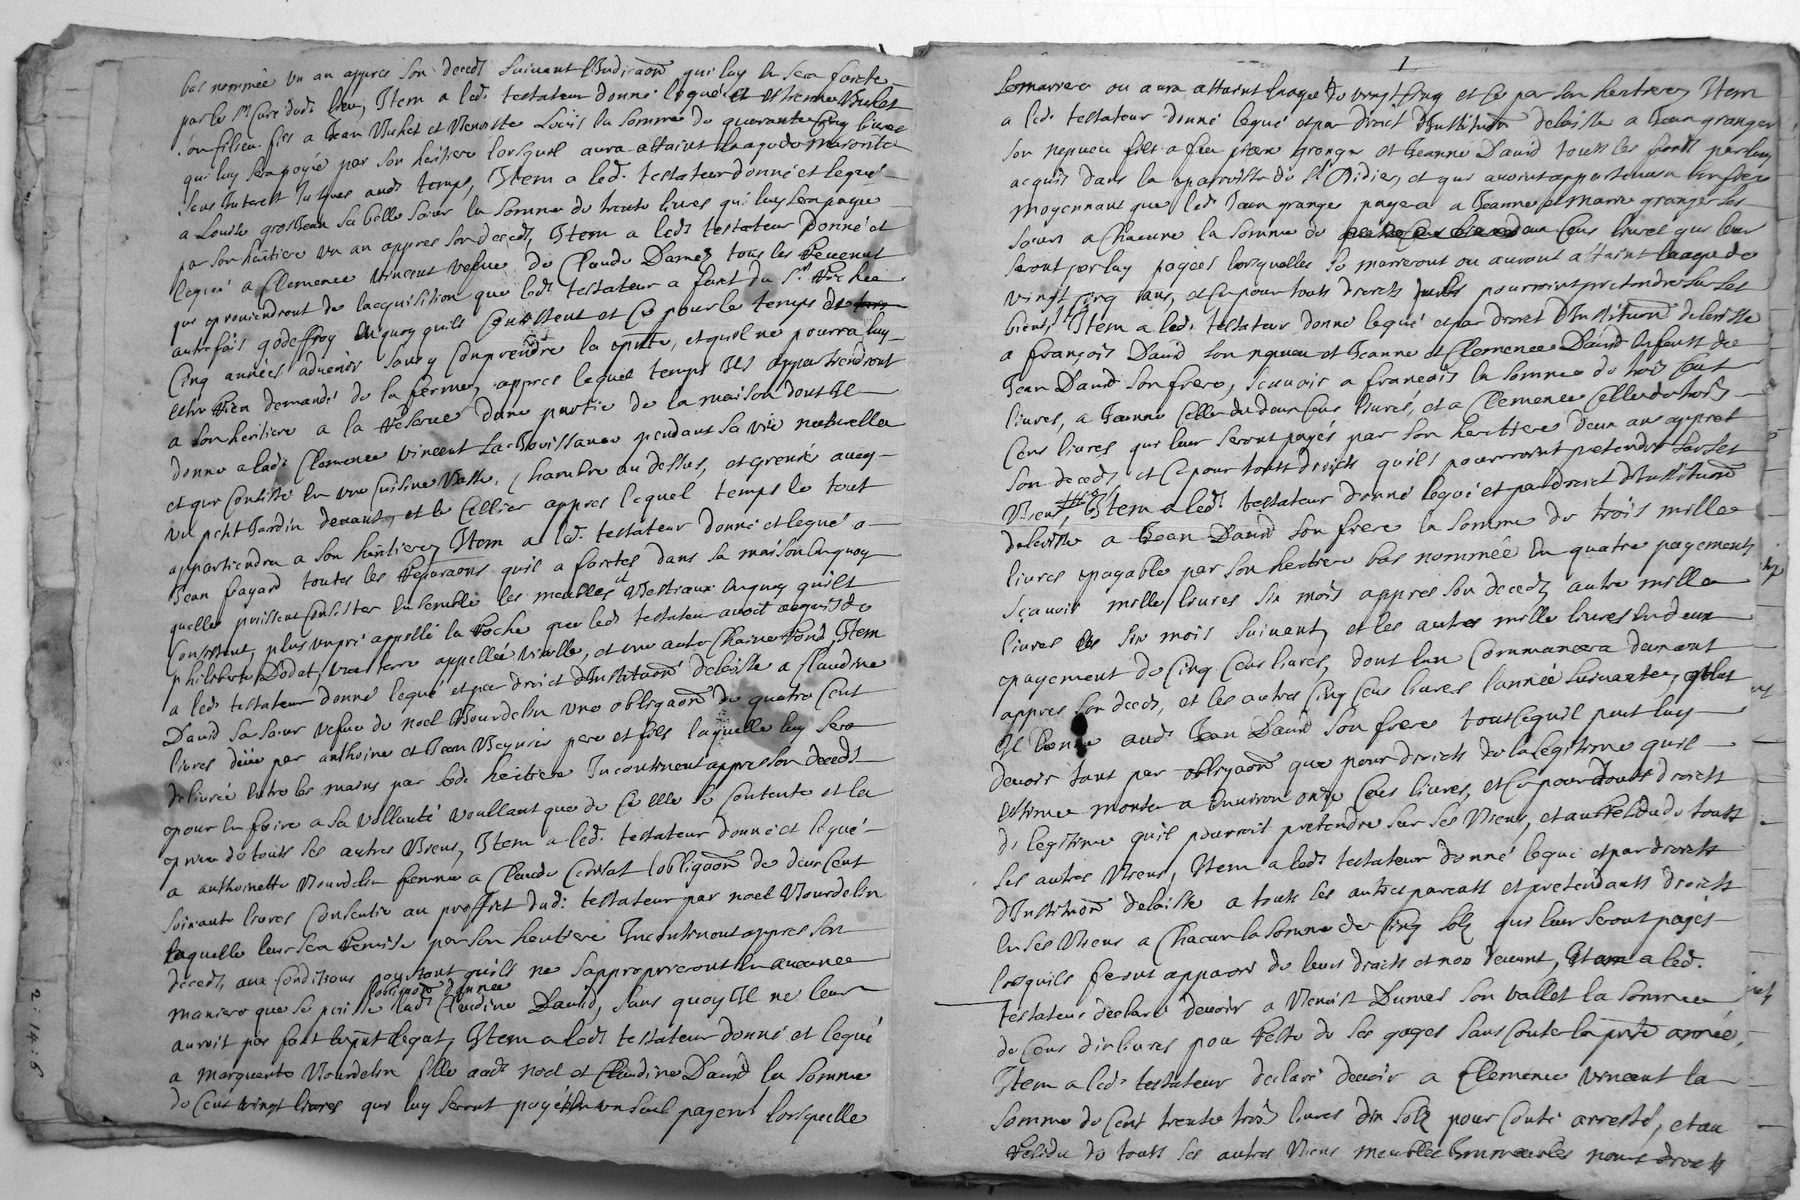 bas nommée un an appres son deced suivant l'Indicaon qui luy en sera faicte
par le Sr Curé dud. lieu, Item a led. testateur donné legué et Estienne Buchet
son filieu fils a Jean Buchet et Benoiste Louis la somme de quarante cinq livres
qui luy sera payée par son heritiere lorsquil aura attaint laage de
sans Interest Jusques aud. temps, Item a led. testateur donné et legué
a Louise grosJean sa belle soeur la somme de trente livres qui luy sera payée
par son heritiere un an appres son deced, Item a led. testateur donné et
legué a Clemence Vincent vefve de Claude Damez tous les Revenus
qui proviendront de lacquisition que led. testateur a faict du Sr Rochea
autrefois godeffroy en quoy quils Consistent et Ce pour le temps de
Cinq années advenir sauf y Comprendre la pnte, et quil ne pourra luy
estre Rien demandé de la ferme, appres lequel temps Ils appartiendront
a son heritiere a la Reserve dune partie de la maison dont Il
donne a lad. Clemence Vincent La Jouissance pendant sa vie naturelle
et qui Consiste en une Cuisine Basse, Chambre au dessus, et grenié avec
un petit Jardin devant, et le Cellier appres lequel temps le tout
appartiendra a son heritiere, Item a led. testateur donné et legué a
Jean fayard toutes les Reparaons quil a faictes dans sa maison en quoy
quelles puissent Consister Ensemble les meubles et Bestiaux en quoy quils
Consistent, plus un pré appellé la Roche que led. testateur avoit acquis de
philiberte Dodat, une terre appellée vialle, et une autre Chaine Rond, Item
a led. testateur donné legué et par droict d'Instituon délaisse a Claudine
David sa soeur vefve de noel Bourdelin une obligaon de quatre Cent
livres düe par anthoine et Jean Beynier pere et fils laquelle luy sera
delivrée entre les mains par sad. heritiere Incontinent appres son deced
pour en faire a sa vollonté voullant que de Celle se Contente et la
prive de touts ses autres Biens, Item a led. testateur donné et legué
a anthoinette Bourdelin femme a Claude Corsat lobligaon de deux Cent
soixante livres Consentie au proffict dud. testateur par noel Bourdelin
laquelle leur sera Remise par son heritiere Incontinent appres son
deced, aux Conditions pourtant quils ne sapproprieront en aucune
maniere que se puisse lad. obligaon donnée Claudine David, sans quoy Il ne leur
auroit pas faict le pnt legat, Item a led. testateur donné et legué
a marguerite Bourdelin fille aud. noel et Claudine David la somme
de Cent vingt livres qui luy seront payées en un seul payemt lorsquelle
1
se marrera ou aura attaint laage de vingt Cinq et Ce par son heritiere, Item
a led. testateur donné legué et par droict d'Instituon delaisse a Jean granger
son nepveu fils a feu pierre granger et Jeanne David touts les fonds par luy
acquis dans la parroisse de St Didier, et qui avoint appartenu
moyennant que led. Jean granger payera a Jeanne et marie granger ses
soeurs a Chacune la somme de deux Cens livres qui leur
seront par luy payées lorsquelles se marreront ou auront attaint laage de
vingt Cinq ans, et Ce pour touts droicts quelles pourroint pretendre sur ses
biens, Item a led. testateur donné legué et par droict d'Instituon delaisse
a françois David son nepveu et Jeanne et Clemence David enfents de
Jean David son frere, scavoir a francois la somme de trois Cent
livres, a Jeanne Celle de deux Cens livres, et a Clemence Celle de trois
Cens livres qui leur seront payés par son heritiere deux ans appres
son deced, et Ce pour touts droicts quils pourroint pretendre sur ses
Biens, Item a led. testateur donné legué et par droict d'Instituon
delaisse a Jean David son frere la somme de trois mille
livres payable par son heritiere bas nommée En quatre payements
sçavoir mille livres six mois appres son deced, autre mille
livres les six mois suivant, et les autres mille livres en deux
payement de Cinq Cens livres, dont lun Commancera dun ant
appres son deced, et les autres Cinq Cens livres lannée suivante,
Il donne aud. Jean David son frere tout Cequil peut luy
devoir tant par obligaon que pour droicts de la legitime quil
estime monter a Environ onze Cens livres, et Ce pour touts droicts
de legitime quil pourroit pretendre sur ses Biens, et au Residu de touts
ses autres Biens, Item a led. testateur donné legué et par droict
d'Instituon delaisse a touts ses autres parents et pretendants droicts
en ses Biens a Chacun la somme de Cinq solz qui leur seront payés
lorsquils feront apparoir de leurs droicts et non devant, Item a led.
testateur declaré devoir a Benoist Dumas son vallet la somme
de Cens dix livres pour Reste de ses gages sans Conter la pnte année,
Item a led. testateur declaré devoir a Clemence Vincent la
somme de Cent trente trois livres dix solz pour Conte arresté, et au
Residu de touts ses autres Biens meubles Immeubles noms droicts